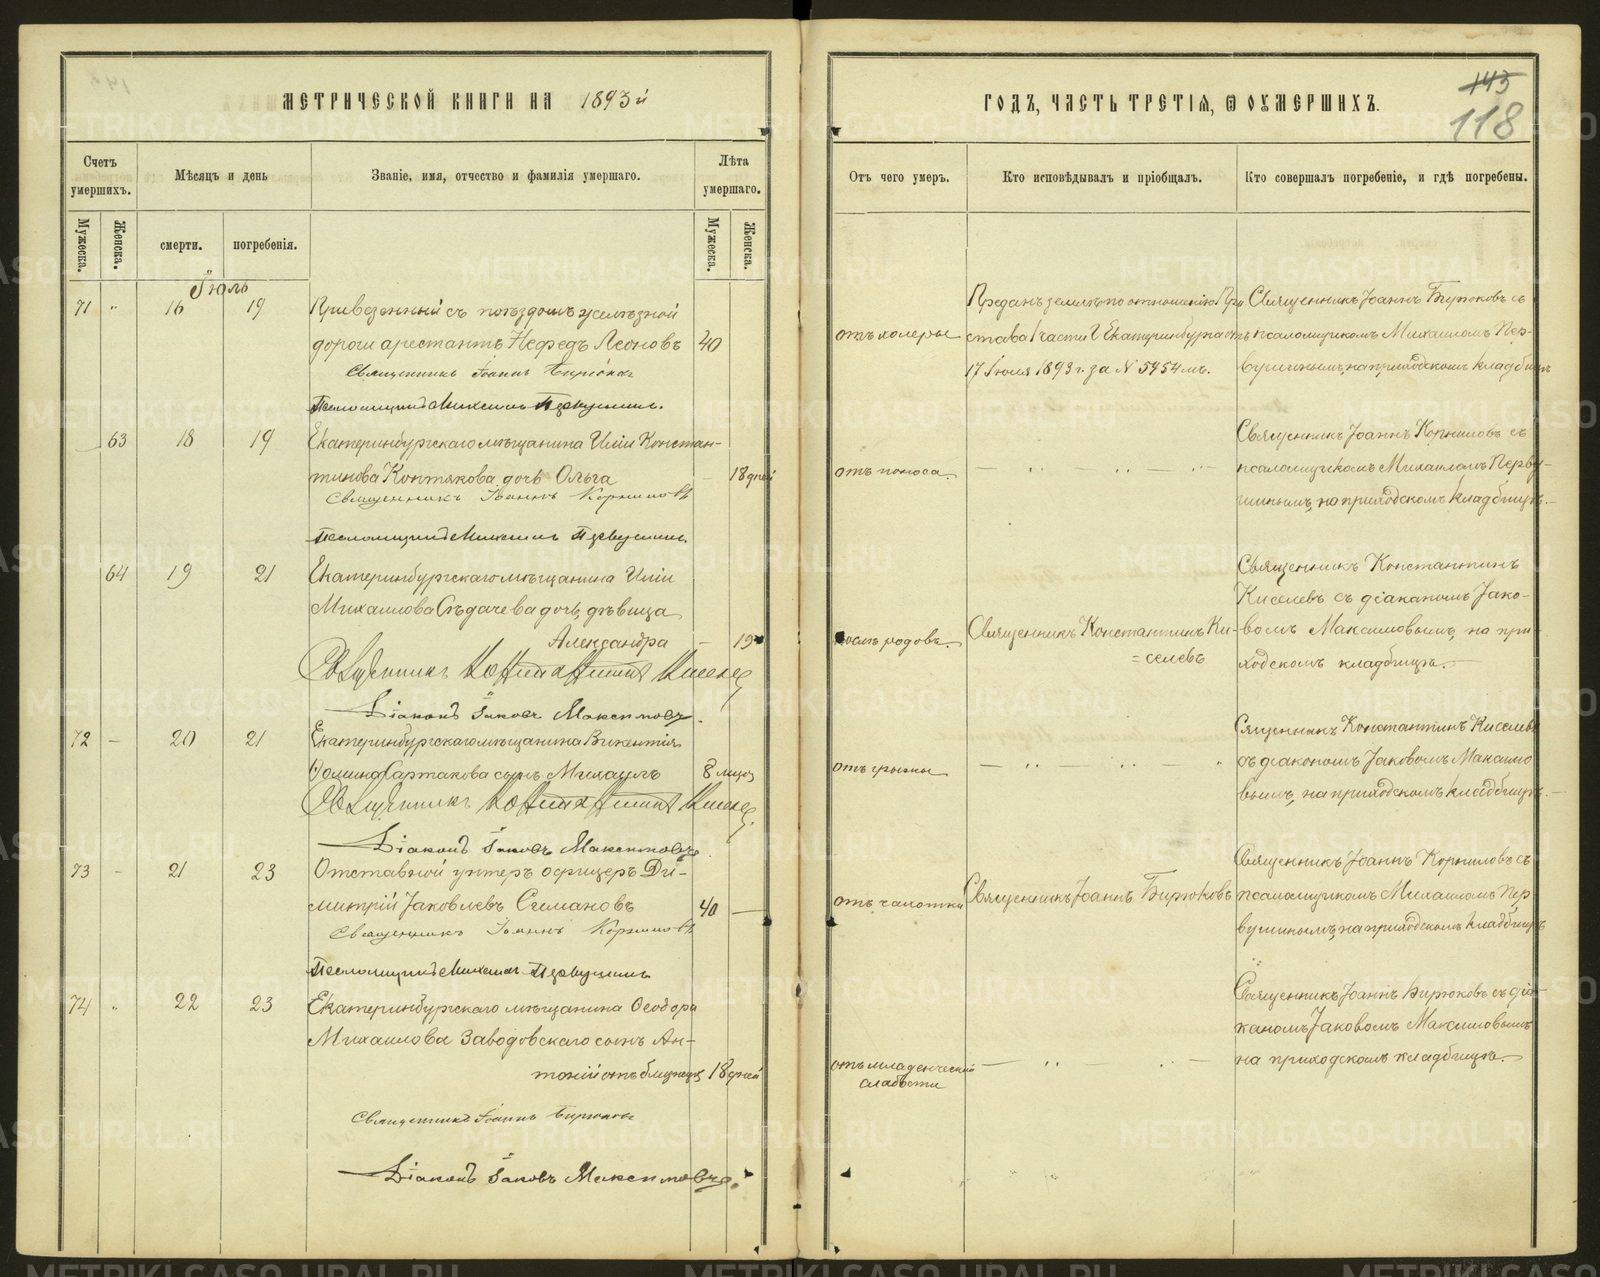 МЕТРИЧЕСКОЙ КНИГИ НА 1893й
Счетъ умершихъ.
Мѣсяцъ и день
Званіе, имя, отчество и фамилія умершаго.
Лѣта умершаго.
Мужеска.
Женска.
смерти.
погребенія.
Мужеска.
Женска.
Іюль
71 " 16 19 Привезенный съ поѣздомъ желѣзной
дороги арестантъ Нефедъ Леоновъ 40
Священникъ Іоаннъ Бирюковъ
Псаломщикъ Михаилъ Первушинъ.
63 18 19 Екатеринбургскаго мѣщанина Иліи Констан-
тинова Контякова дочь Ольга – 18 дней
Священникъ Іоаннъ Корниловъ
Псаломщикъ Михаилъ Первушинъ.
64 19 21 Екатеринбургскаго мѣщанина Иліи
Михаилова дочь, дѣвица
Александра – 19
Священникъ Константинъ Киселевъ
Діаконъ Іаковъ Максимовъ.
72 – 20 21 Екатеринбургскаго мѣщанина Викентія
Сартакова сынъ Михаилъ 8 мѣсяц
Священникъ Константинъ Киселевъ
Діаконъ Іаковъ Максимовъ.
73 – 21 23 Отставной унтеръ офицеръ Ди-
митрій Іаковлевъ Симановъ 40 –
Священникъ Іоаннъ Корниловъ
Псаломщикъ Михаилъ Первушинъ
74 " 22 23 Екатеринбургскаго мѣщанина Ѳеодора
Михаилова Заводовскаго сынъ Ан-
тоній отъ близнецъ 18 дней
Священникъ Іоаннъ Бирюковъ
Діаконъ Іаковъ Максимовъ.
ГОДЪ, ЧАСТЬ ТРЕТІЯ, Ѿ ОУМЕРШИХЪ.
143
118
Отъ чего умеръ.
Кто исповѣдывалъ и пріобщалъ.
Кто совершалъ погребеніе, и гдѣ погребены.
Преданъ землѣ по отношенію При- Священникъ Іоаннъ Бирюковъ съ
отъ холеры става 1 части Г Екатеринбурга отъ псаломщикомъ Михаиломъ Пер-
17 Іюля 1893 г. за N 5454мъ. вушинымъ, на приходскомъ кладбищѣ
Священникъ Іоаннъ Корниловъ съ
отъ поноса. – " " – " псаломщикомъ Михаиломъ Перву-
шинымъ, на приходскомъ кладбищѣ.
Священникъ Константинъ
Киселевъ съ діакономъ Іако-
послѣ родовъ. Священникъ Константинъ Ки- вомъ Максимовымъ, на при-
=селевъ ходскомъ кладбищѣ.
Сященникъ Константинъ Киселевъ
отъ грыжи – " – " – " съ діакономъ Іаковомъ Максимо
вымъ, на приходскомъ кладбищѣ.
Священникъ Іоаннъ Корниловъ съ
отъ чахотки Священникъ Іоаннъ Бирюковъ псаломщикомъ Михаиломъ Пер
вушинымъ, на приходскомъ кладбищѣ
Священникъ Іоаннъ Бирюковъ съ діа-
кономъ Іаковомъ Максимовымъ
отъ младенческой – " . – на приходскомъ кладбищѣ.
слабости
METRIKI.GASO-URAL.RU